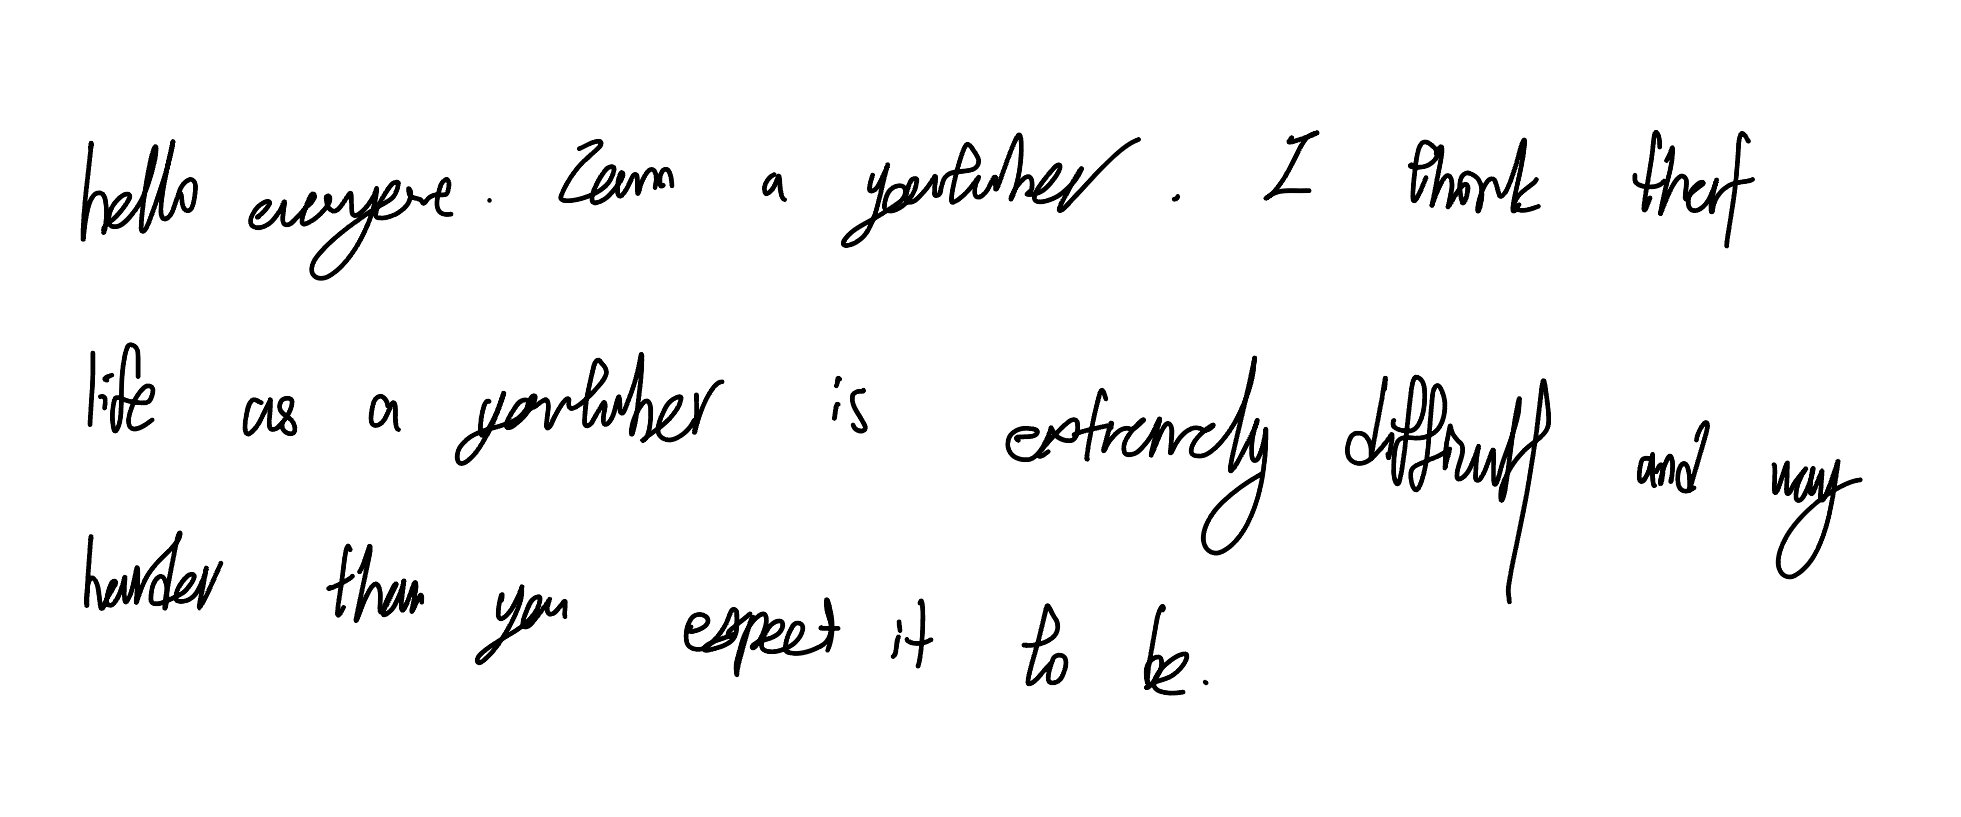 hello everyone. I am a youtuber. I think that
life as a youtuber is extremely difficult and way
harder than you expect it to be.